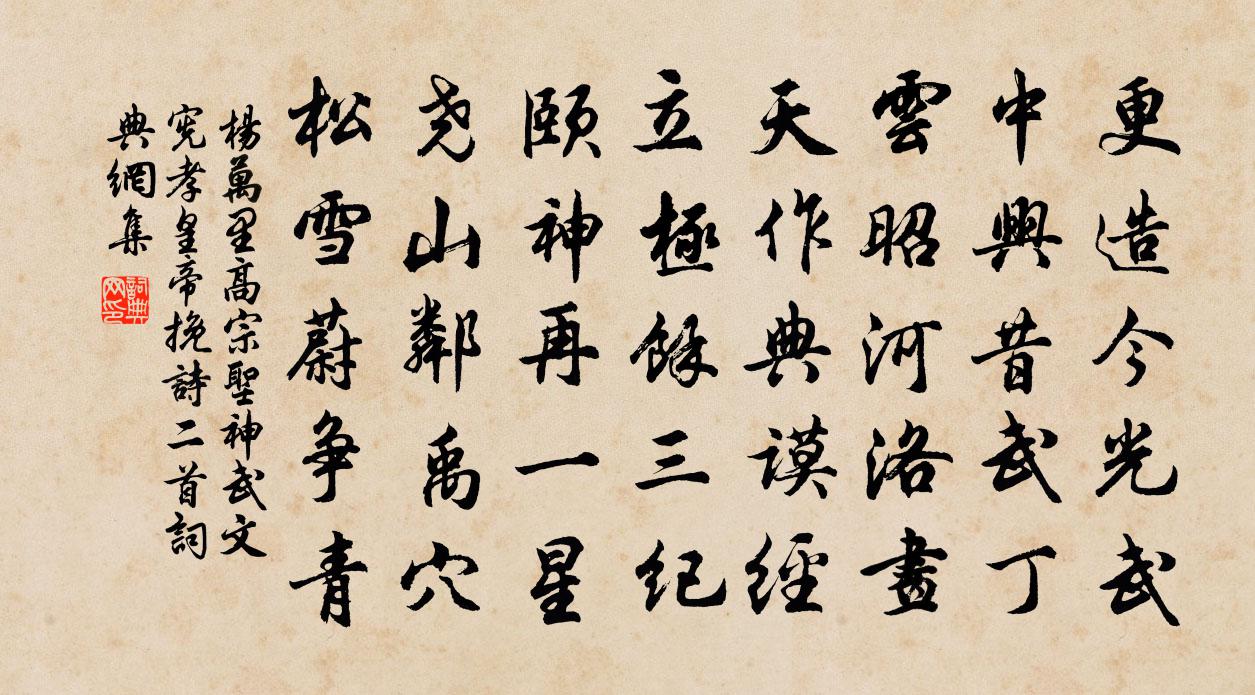 更造今光武
中興昔武丁
雲昭河洛畫
天作典謨經
立極餘三紀
頤神再一星
尧山鄰禹穴
松雪蔚争青
楊萬里高宗聖神武文
宪孝皇帝挽詩二首詞
典網集
詞典
网印